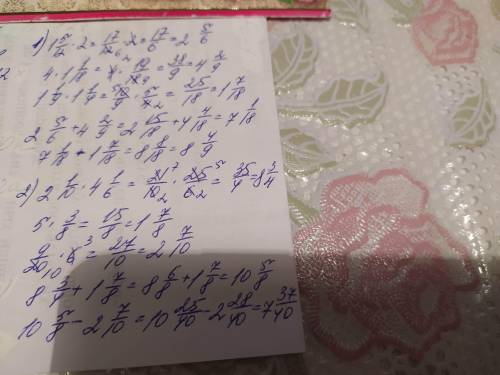 1) 1 5/12 · 2 = 17/12 6 · 2 = 17/6 = 2 5/6
4 · 1 1/18 = 4 · 19/18 9 = 38/9 = 4 2/9
1 1/9 · 1 1/4 = 10 5/9 · 5/4 2 = 25/18 = 1 7/18
2 5/6 + 4 2/9 = 2 15/18 + 4 4/18 = 7 1/18
7 1/18 + 1 7/18 = 8 8/18 = 8 4/9
2) 2 1/10 · 4 1/6 = 21 7/10 2 · 25 5/6 2 = 35/4 = 8 3/4
5 · 3/8 = 15/8 = 1 7/8
9/20 10 · 6 3 = 27/10 = 2 7/10
8 3/4 + 1 7/8 = 8 6/8 + 1 7/8 = 10 5/8
10 5/8 - 2 7/10 = 10 25/40 - 2 28/40 = 7 37/40